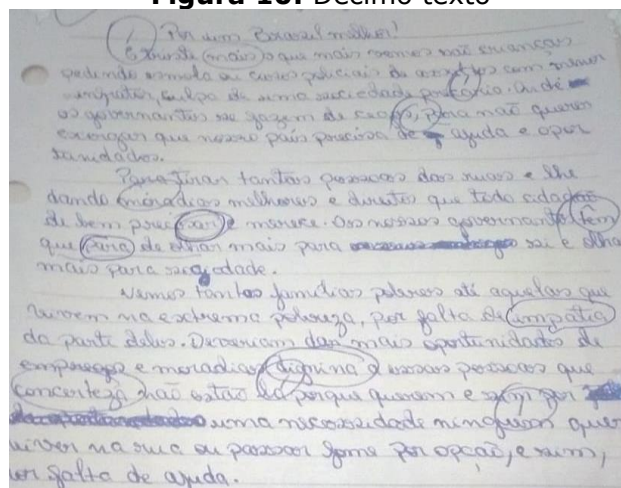 Figura 10: Décimo texto
Por um Brasil melhor!
É triste mais o que mais vemos são crianças
pedindo esmola ou casos policiais de assaltos com menor
infrator, culpa de uma sociedade precária. Onde
os governantes se fazem de cegos, para não querer
enxergar que nosso país precisa de ajuda e opor
tunidades.
Para tirar tantas pessoas das ruas e lhe
dando moradias melhores e direitos que todo cidadão
de bem precisar e merece. Os nossos governantes tem
que para de olhar mais para si e olha
mais para sociedade.
Vemos tantas famílias pobres até aquelas que
vivem na extrema pobreza, por falta de impatia
da parte deles. Deveriam dar mais oportunidades de
empregos e moradias dignina a essas pessoas que
concerteza não estão lá porque querem e sim por
uma necessidade ninguem quer
viver na rua ou passar fome por opção, e sim,
por falta de ajuda.